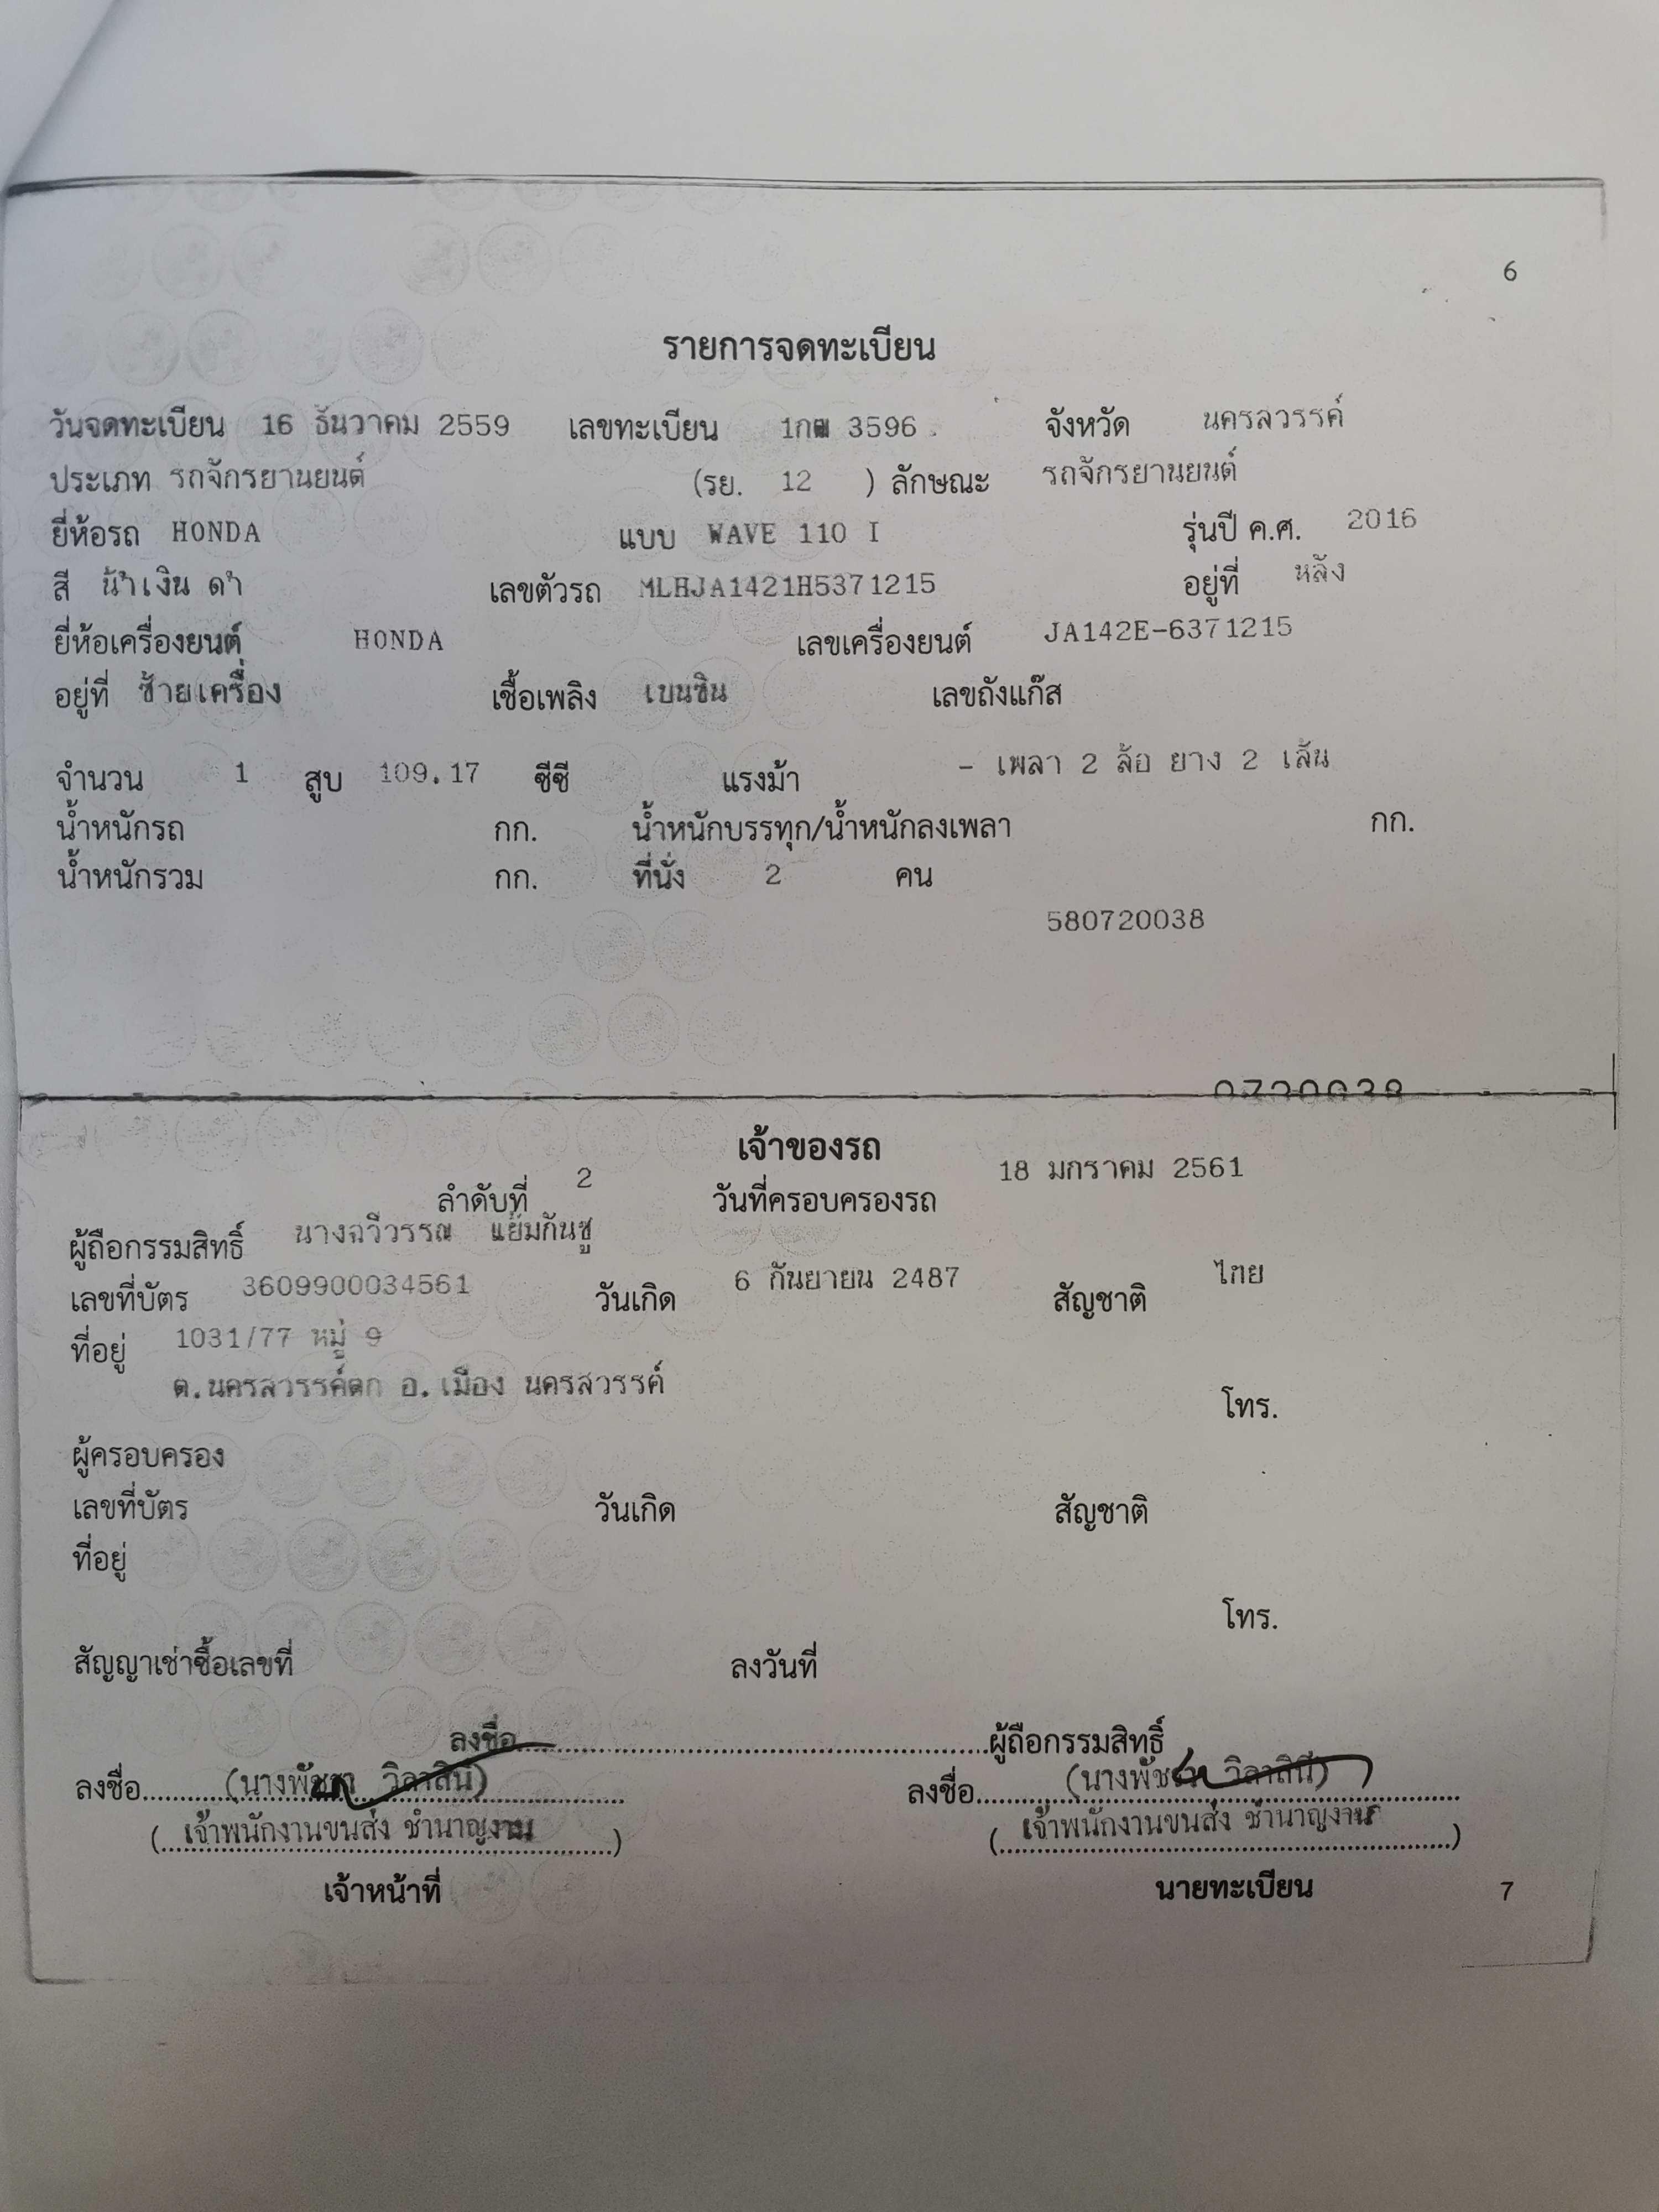 6
รายการจดทะเบียน
วันจดทะเบียน 16 ธันวาคม 2559 เลขทะเบียน 3596 จังหวัด นครสวรรค์
ประเภท รถจักรยานยนต์ (รย. 12 ) ลักษณะ รถจักรยานยนต์
ยี่ห้อรถ HONDA แบบ WAVE 110 I รุ่นปี ค.ศ. 2016
สี น้ำเงิน ดำ เลขตัวรถ MLHJA1421H5371215 อยู่ที่ หลัง
ยี่ห้อเครื่องยนต์ HONDA เลขเครื่องยนต์ JA142E-6371215
อยู่ที่ ซ้ายเครื่อง เชื้อเพลิง เบนซิน เลขถังแก๊ส
จำนวน 1 สูบ 109.17 ซีซี แรงม้า - เพลา 2 ล้อ ยาง 2 เส้น
น้ำหนักรถ กก. น้ำหนักบรรทุก/น้ำหนักลงเพลา กก.
น้ำหนักรวม กก. ที่นั่ง 2 คน
580720038
0720038
เจ้าของรถ
ลำดับที่ 2 วันที่ครอบครองรถ 18 มกราคม 2561
ผู้ถือกรรมสิทธิ์ นางฉวีวรรณ แย้มกันชู
เลขที่บัตร 3609900034561 วันเกิด 6 กันยายน 2487 สัญชาติ ไทย
ที่อยู่ 1031/77 หมู่ 9
ต.นครสวรรค์ตก อ.เมือง นครสวรรค์ โทร.
ผู้ครอบครอง
เลขที่บัตร วันเกิด สัญชาติ
ที่อยู่
โทร.
สัญญาเช่าซื้อเลขที่ ลงวันที่
ลงชื่อ ผู้ถือกรรมสิทธิ์
ลงชื่อ (นางพัชรา วิลาสินี) ลงชื่อ (นางพัชรา วิลาสินี)
(เจ้าพนักงานขนส่ง ชำนาญงาน) (เจ้าพนักงานขนส่ง ชำนาญงาน)
เจ้าหน้าที่ นายทะเบียน 7